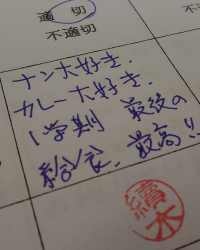 適 切
不適切
ナン大好き.
カレー大好き.
1学期 最後の
給食、最高!!